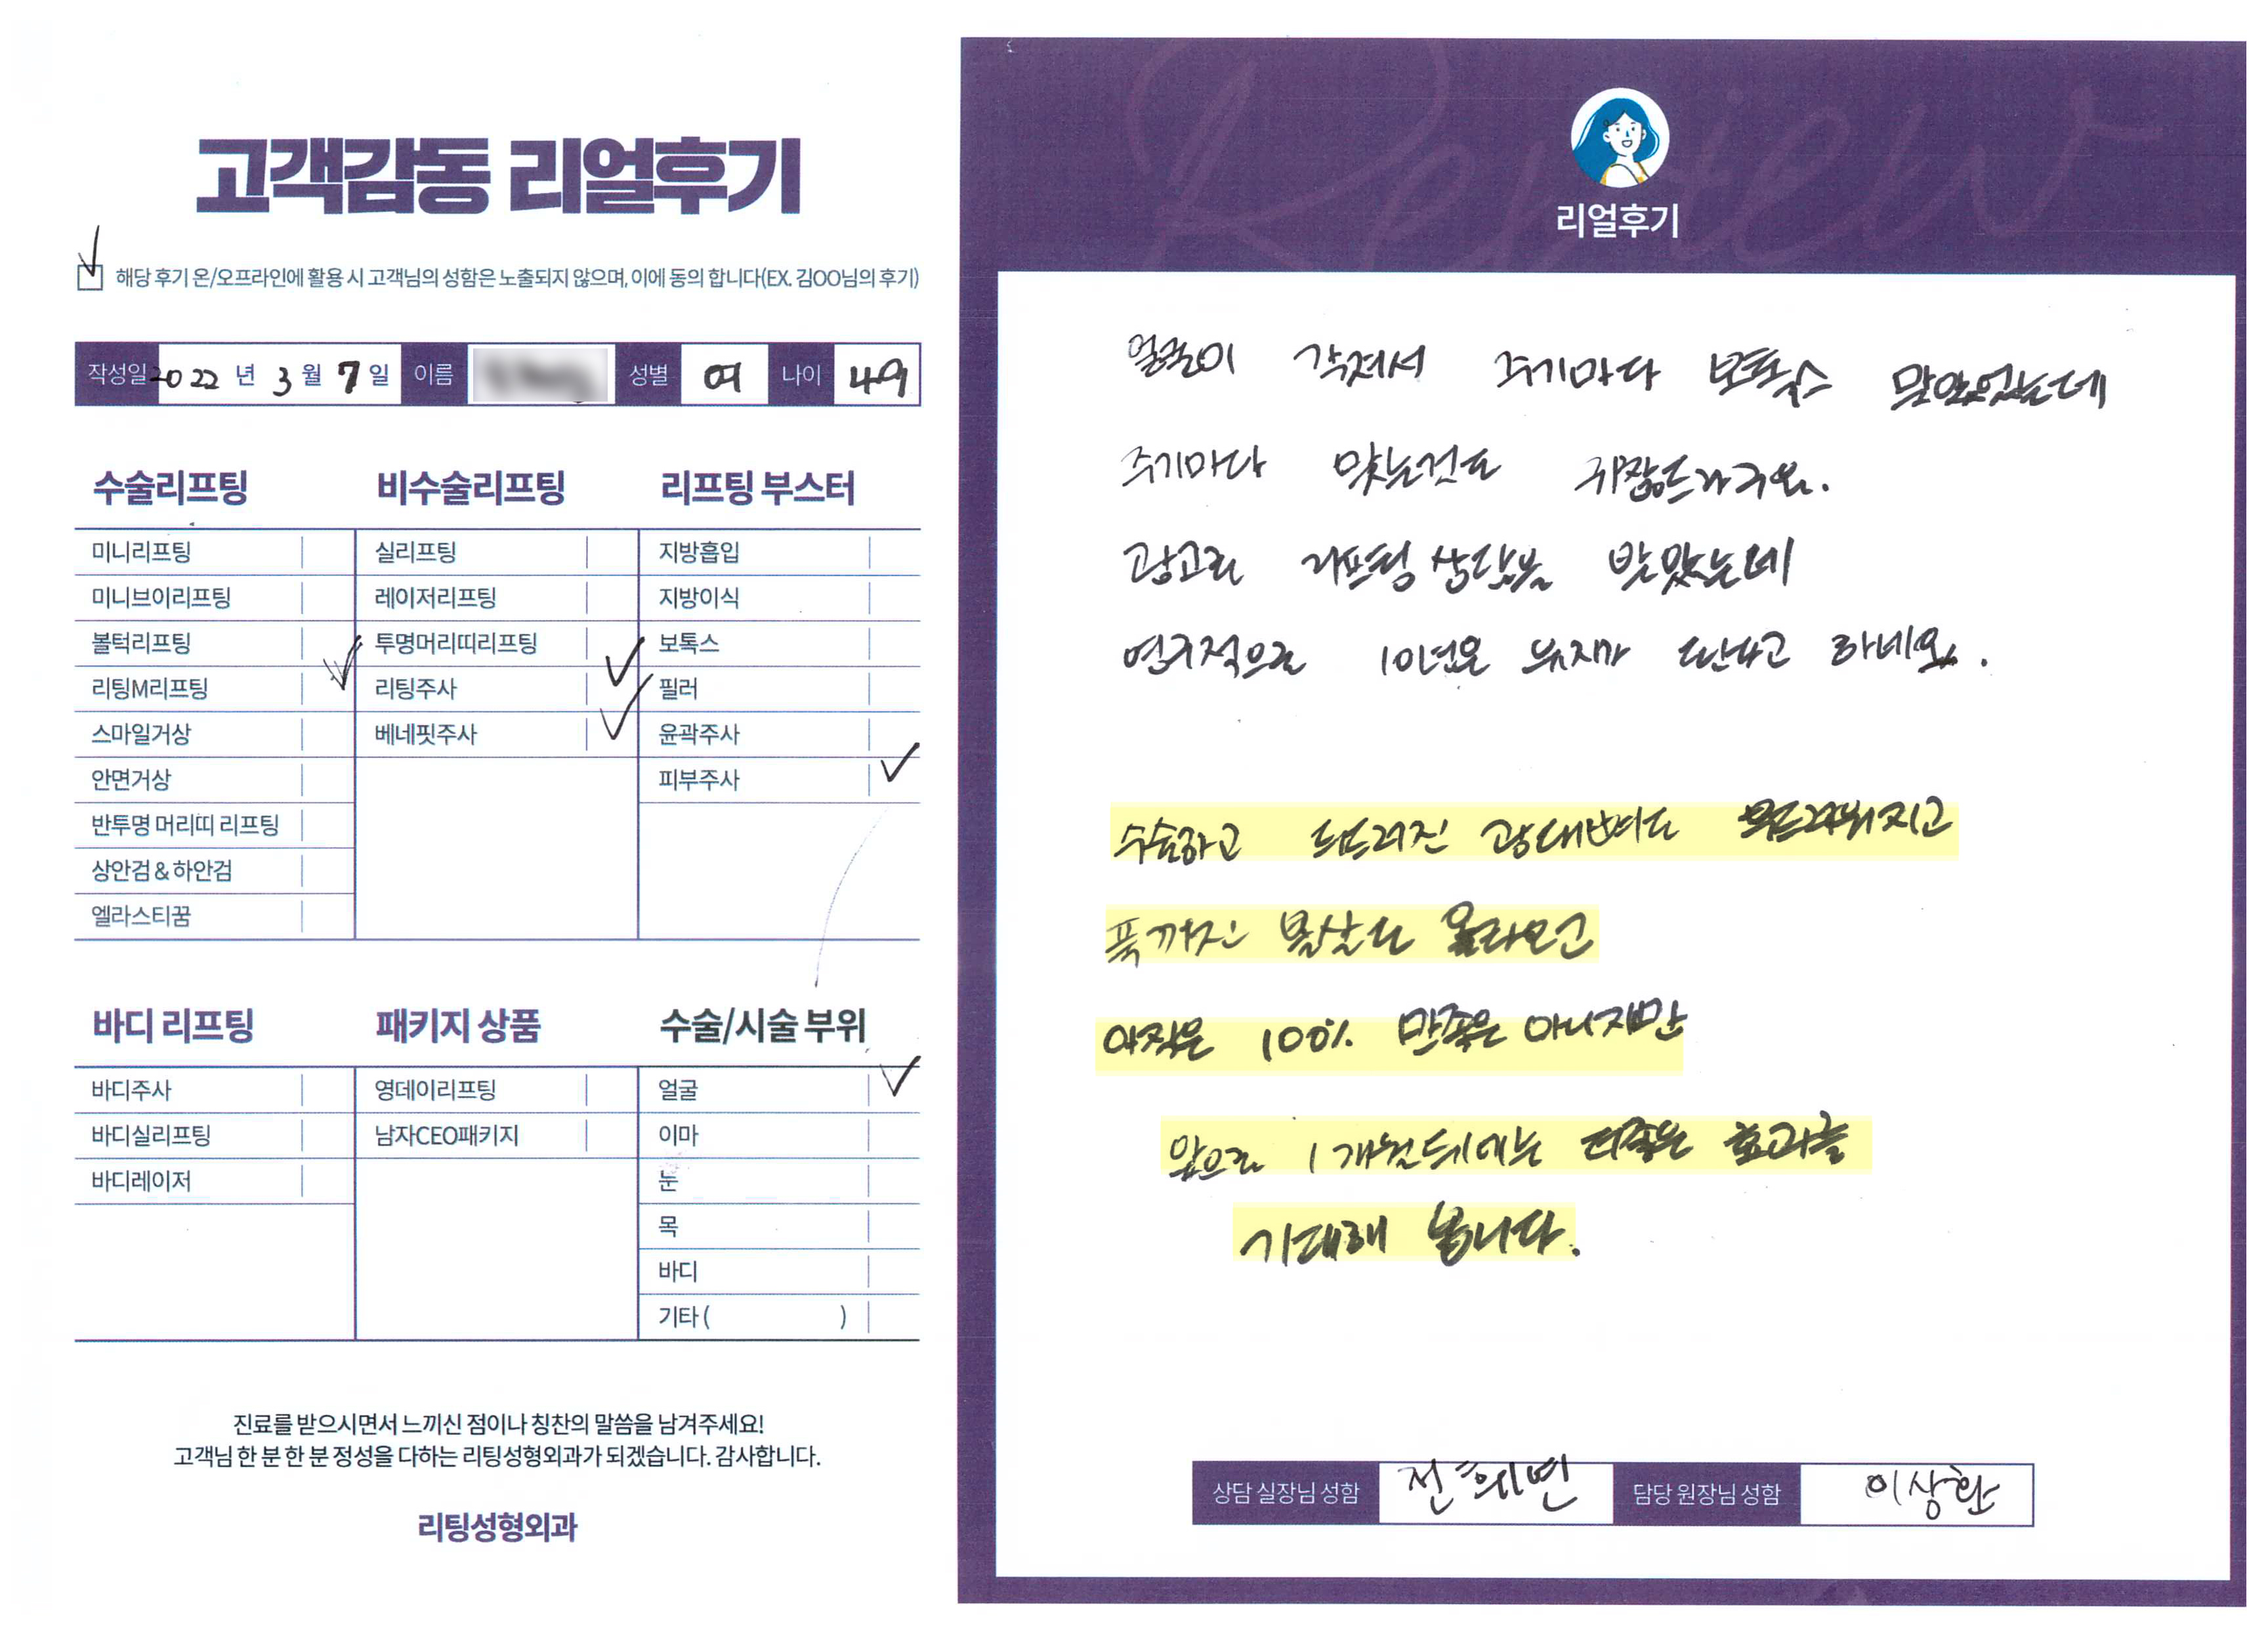 고객감동 리얼후기
해당 후기 온/오프라인에 활용 시 고객님의 성함은 노출되지 않으며, 이에 동의 합니다(EX. 김OO님의 후기)
작성일 2022 년 3 월 7 일 이름 성별 여 나이 49
수술리프팅
미니리프팅
미니브이리프팅
볼턱리프팅
리팅M리프팅
스마일거상
안면거상
반투명 머리띠 리프팅
상안검 & 하안검
엘라스티꿈
비수술리프팅
실리프팅
레이저리프팅
투명머리띠리프팅
리팅주사
베네핏주사
리프팅 부스터
지방흡입
지방이식
보톡스
필러
윤곽주사
피부주사
바디 리프팅
바디주사
바디실리프팅
바디레이저
패키지 상품
영데이리프팅
남자CEO패키지
수술/시술 부위
얼굴
이마
눈
목
바디
기타 ( )
진료를 받으시면서 느끼신 점이나 칭찬의 말씀을 남겨주세요!
고객님 한 분 한 분 정성을 다하는 리팅성형외과가 되겠습니다. 감사합니다.
리팅성형외과
Review
리얼후기
얼굴이 각져서 주기마다 보톡스 맞았었는데
주기마다 맞는것도 귀찮드라구요.
광고로 리프팅 상담을 받았는데
영구적으로 10년은 유지가 된다고 하네요.
수술하고 도드라진 광대뼈도 부드러워지고
푹꺼진 볼살도 올라오고
아직은 100% 만족은 아니지만
앞으로 1개월뒤에는 더좋은 효과를
기대해 봅니다.
상담 실장님 성함 전희변 담당 원장님 성함 이상환